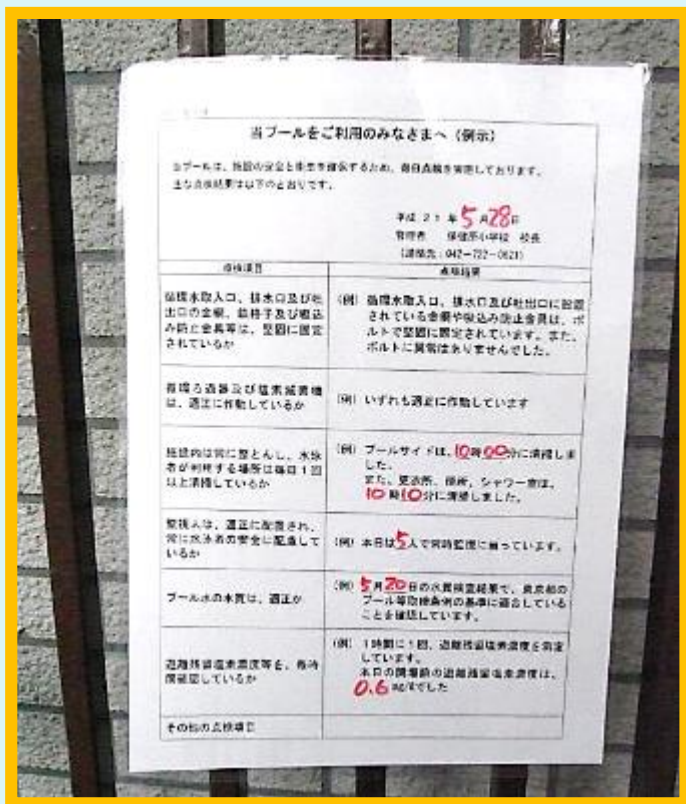 当プールをご利用のみなさまへ（例示）
当プールは、施設の安全と衛生を確保するため、毎日点検を実施しております。
主な点検結果は以下のとおりです。
平成 21 年 5 月 28 日
管理者 保健所小学校 校長
（連絡先：042-722-0621）
点検項目
点検結果
循環水取入口、排水口及び吐
出口の金網、鉄格子及び吸込
み防止金具等は、堅固に固定
されているか
（例） 循環水取入口、排水口及び吐出口に設置
されている金網や吸込み防止金具は、ボ
ルトで堅固に固定されています。また、
ボルトに異常はありませんでした。
循環ろ過器及び塩素滅菌機
は、適正に作動しているか
（例） いずれも適正に作動しています
施設内は常に整とんし、水泳
者が利用する場所は毎日１回
以上清掃しているか
（例） プールサイドは、10時00分に清掃しま
した。
また、更衣所、便所、シャワー室は、
10時10分に清掃しました。
監視人は、適正に配置され、
常に水泳者の安全に配慮して
いるか
（例） 本日は5人で常時監視に当っています。
プール水の水質は、適正か
（例） 5月20日の水質検査結果で、東京都の
プール等取締条例の基準に適合している
ことを確認しています。
遊離残留塩素濃度等を、毎時
間確認しているか
（例） １時間に１回、遊離残留塩素濃度を測定
しています。
本日の開場前の遊離残留塩素濃度は、
0.6 mg/ℓでした
その他の点検項目